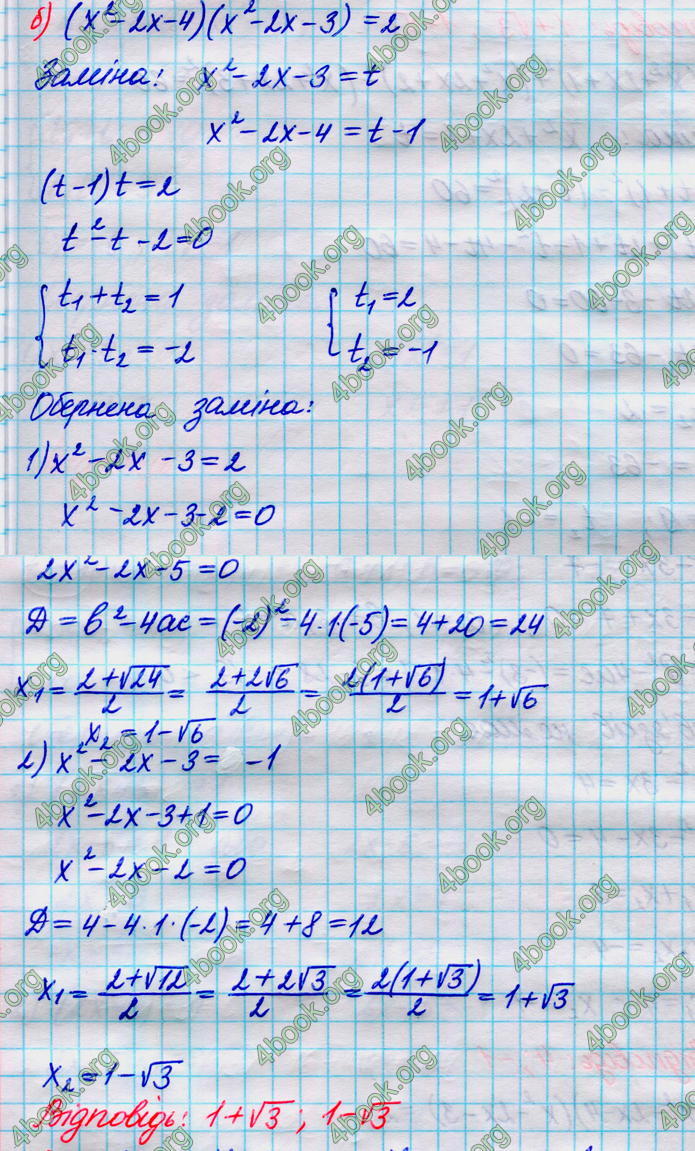 б) (x²-2x-4)(x²-2x-3)=2
Заміна: x²-2x-3=t
x²-2x-4=t-1
(t-1)t=2
t²-t-2=0
{t₁+t₂=1 {t₁=2
t₁·t₂=-2 t₂=-1
Обернена заміна:
1) x²-2x-3=2
x²-2x-3-2=0
2x²-2x-5=0
Д=в²-4ac=(-2)²-4·1·(-5)=4+20=24
x₁=(2+√24)/2=(2+2√6)/2=(2(1+√6))/2=1+√6
x₂=1-√6
2) x²-2x-3=-1
x²-2x-3+1=0
x²-2x-2=0
Д=4-4·1·(-2)=4+8=12
x₁=(2+√12)/2=(2+2√3)/2=(2(1+√3))/2=1+√3
x₂=1-√3
Відповідь: 1+√3; 1-√3
4book.org